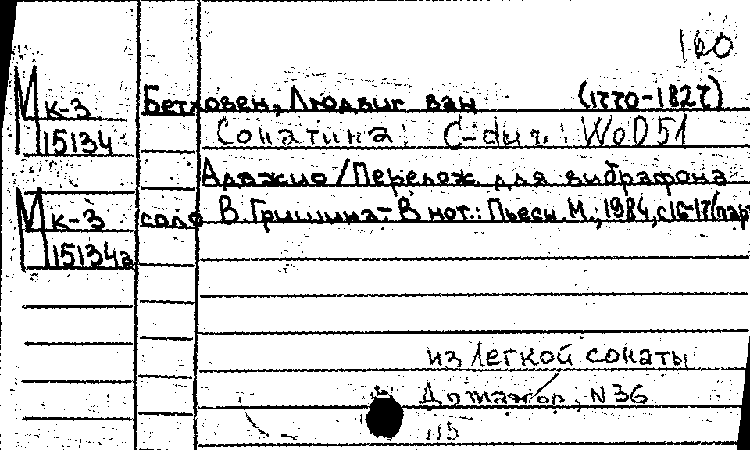 160
М к-3 Бетховен, Людвиг ван (1770-1827)
15134 Сонатина: C-dur.: WoO51
Адажио/Перелож для вибрафона
М к-3 соло В. Гришина - В нот.: Пьесы М., 1984, с16-17(пар
15134а
из легкой сонаты
До мажор, N36
115